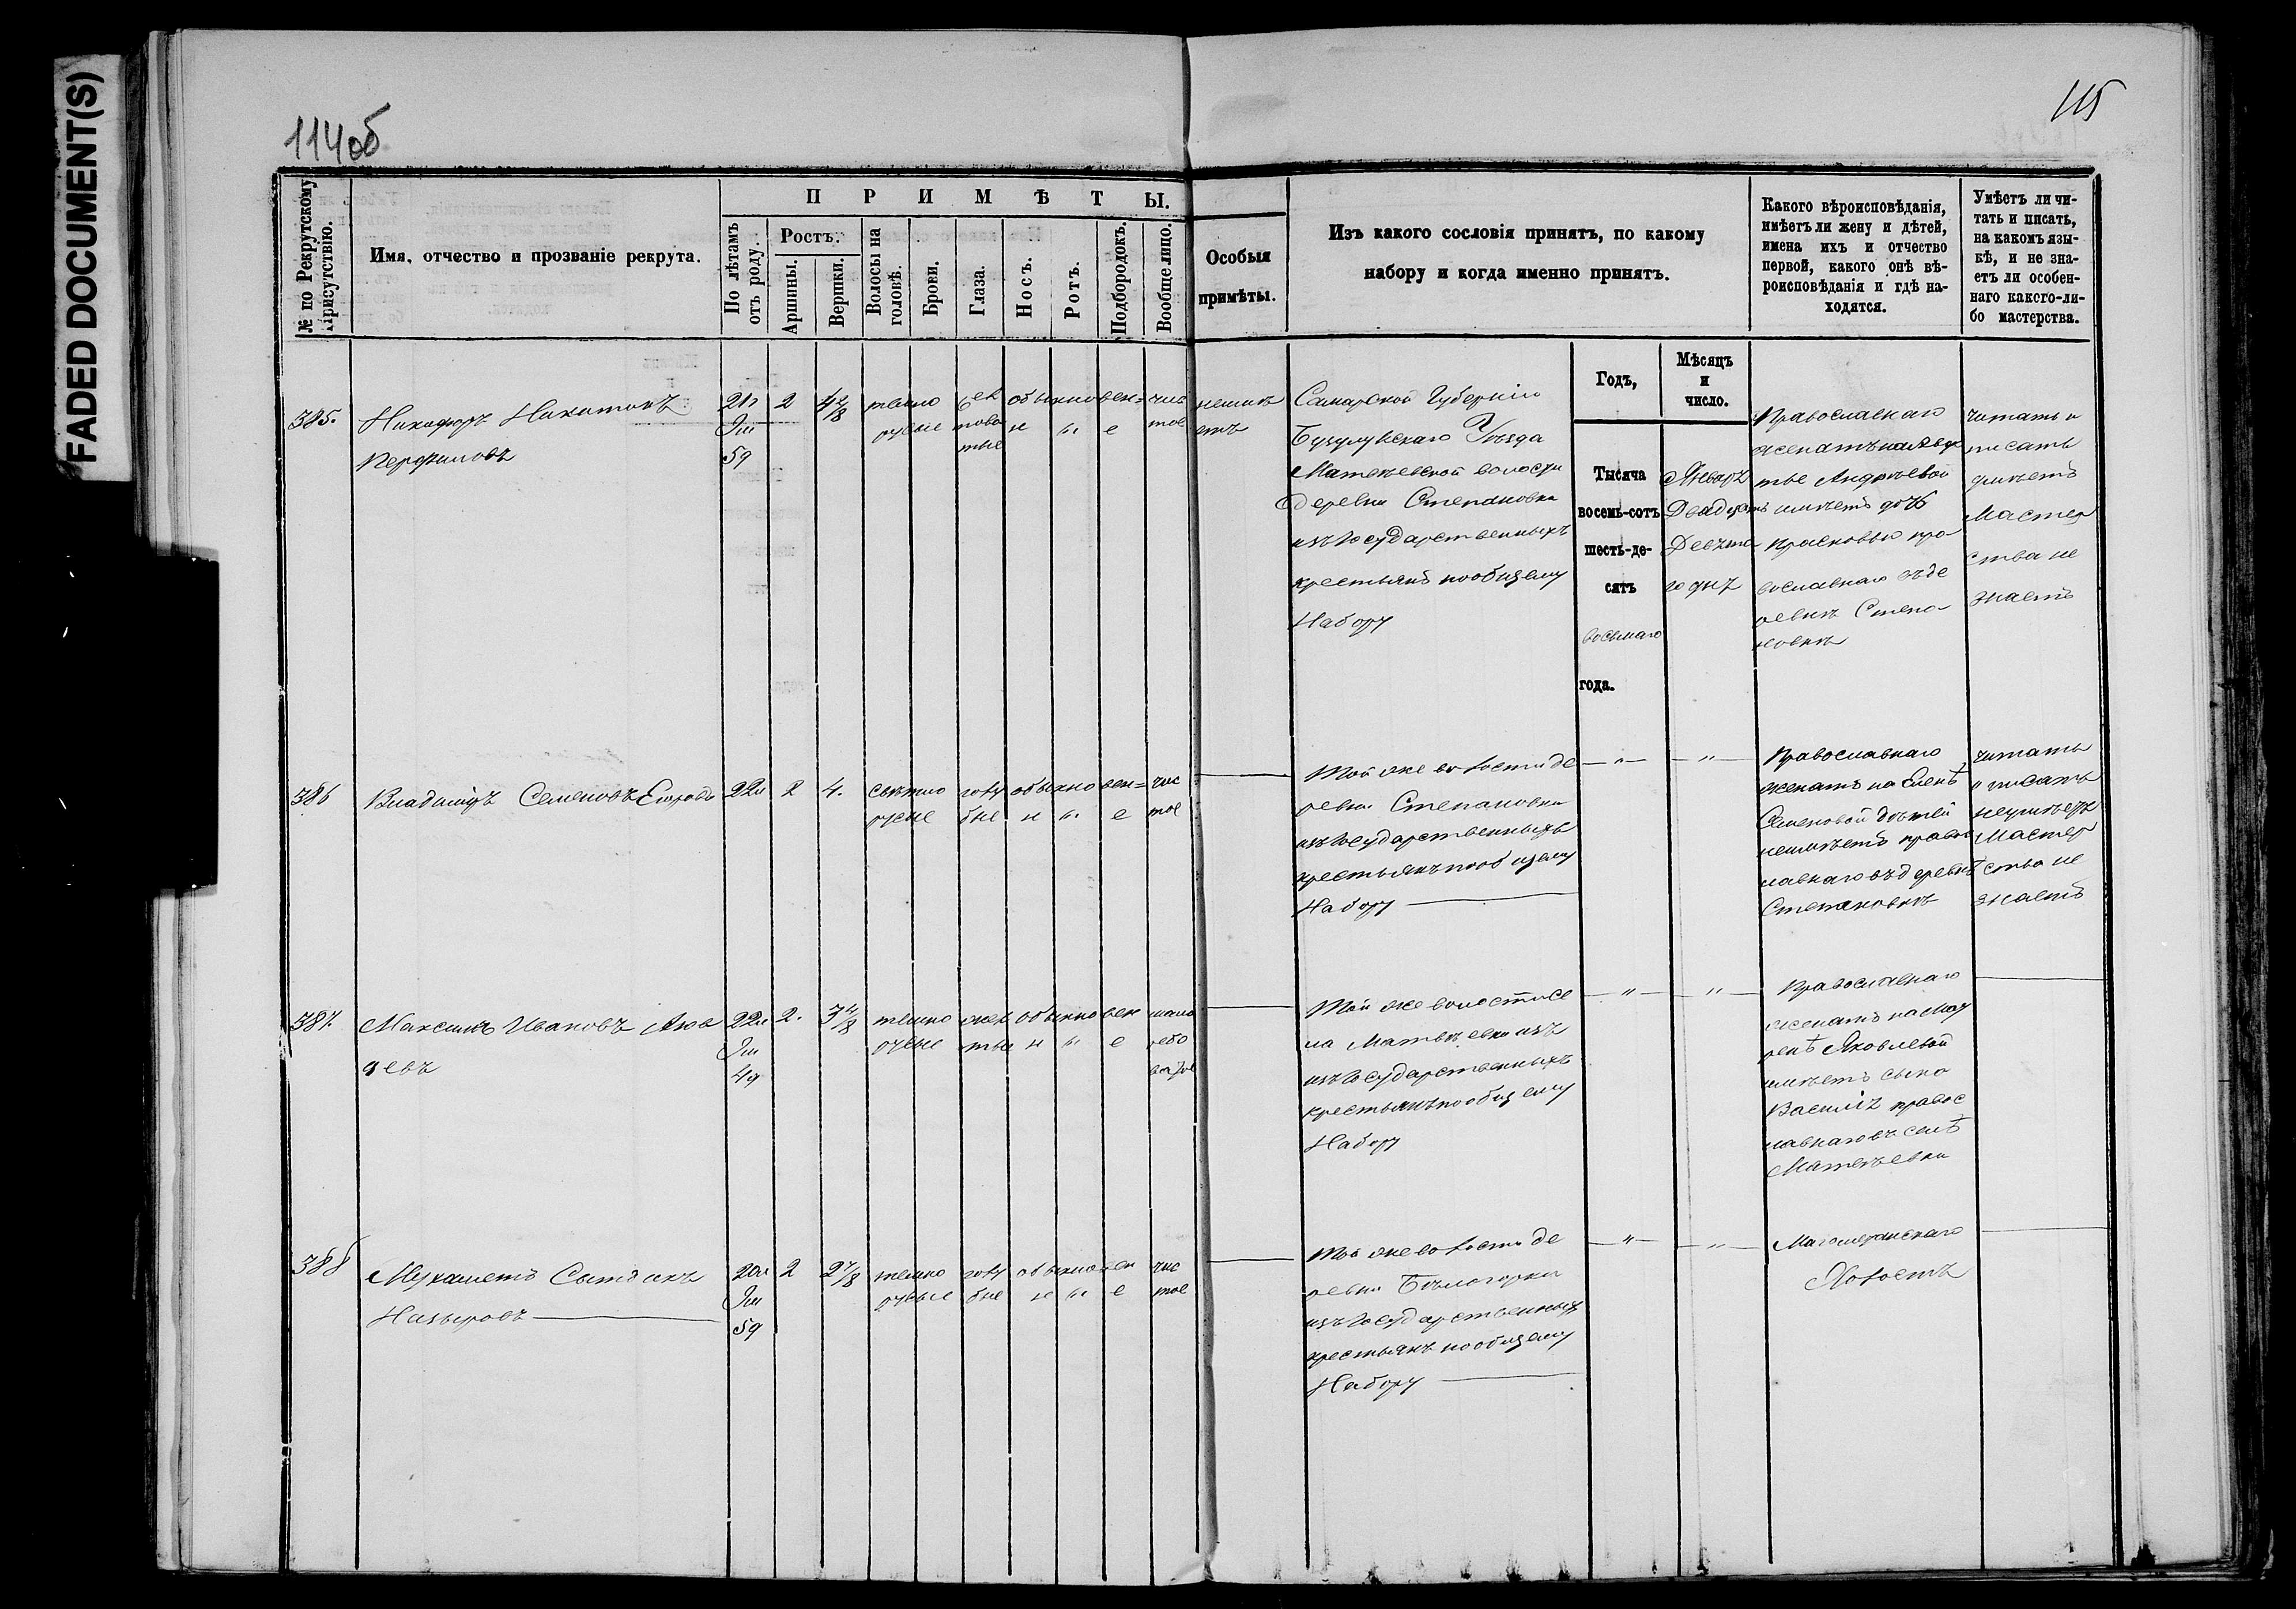 FADED DOCUMENT(S)
114об
115
ПРИМѢТЫ.
№ по Рекрутскому Присутствію.
Имя, отчество и прозваніе рекрута.
По лѣтамъ отъ роду.
Ростъ.
Аршины.
Вершки.
Волосы на головѣ.
Брови.
Глаза.
Носъ.
Ротъ.
Подбородокъ.
Вообще лицо.
Особыя
примѣты.
Изъ какого сословія принятъ, по какому
набору и когда именно принятъ.
Какого вѣроисповѣданія,
имѣетъ ли жену и дѣтей,
имена ихъ и отчество
первой, какого онѣ вѣ-
роисповѣданія и гдѣ на-
ходятся.
Умѣетъ ли чи-
тать и писать,
на какомъ язы-
кѣ, и не зна-
етъ ли особен-
наго какого-ли-
бо мастерства.
Годъ,
Мѣсяцъ
и
число.
385.
Никифоръ
Перфиловъ
21
5
2
4 2/8
темно
русые
обыкновен=
ны е
чис
тое
неимѣ
етъ
Самарской Губерніи
Бузулукскаго Уѣзда
Матвѣевской волости
деревни Степановки
изъ Государственныхъ
крестьянъ пообщему
Набору
Тысяча
восемь-сотъ
шесть-де-
сятъ
восьмаго
года.
Январь
Двадцать
Девята
го дня
Православнаго
женатъ на
Андреевой
имѣетъ дочь
Прасковью пра
вославнаго въ де
ревнѣ Степа-
новкѣ
читать и
писать
умѣетъ
Мастер
ства не
знаетъ
386
Владиміръ Семеновъ Егоровъ
22л
2
4.
свѣтло
русые
голу
бые
обыкновен=
ны е
чис
тое
Той же волости де
ревни Степановки
изъ Государственныхъ
крестьянъ пообщему
Набору
— " —
— " —
Православнаго
женатъ на Еленѣ
Семеновой дѣтей
неимѣетъ правос
лавнаго въ деревнѣ
Степановкѣ
читать
и писать
неумѣетъ
Мастер
ства не
знаетъ
387.
Максимъ Ивановъ
22л
4
2.
3 4/8
темно
русые
жел
тые
обыкновен
ны е
Той же волости се
ла Матвѣевки изъ
изъ Государственныхъ
крестьянъ пообщему
Набору
— " —
— " —
Православнаго
женатъ на Мат
ренѣ Яковлевой
имѣетъ сына
Василія правос
лавнаго въ селѣ
Матвѣевки
388
Мухаметъ Сытдикъ
Назыровъ
20л
5
2
2 7/8
темно
русые
голу
бые
обыкновен
ны е
чис
тое
Той же волости де
ревни Бѣлогорки
изъ Государственныхъ
крестьянъ пообщему
Набору
— " —
— " —
Магометанскаго
Холостъ